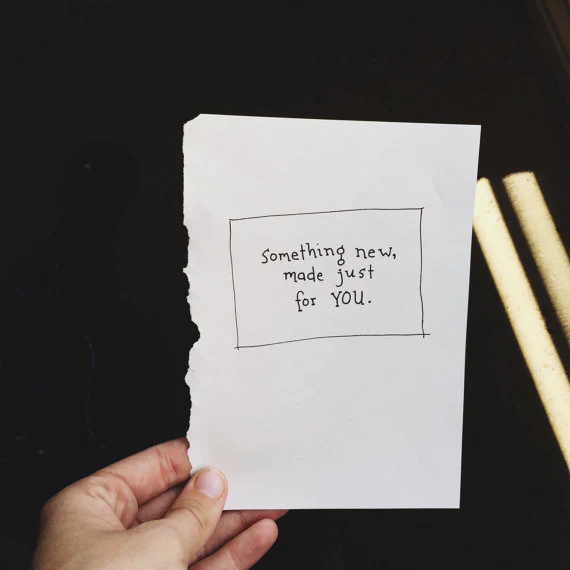 Something new,
made just
for YOU.